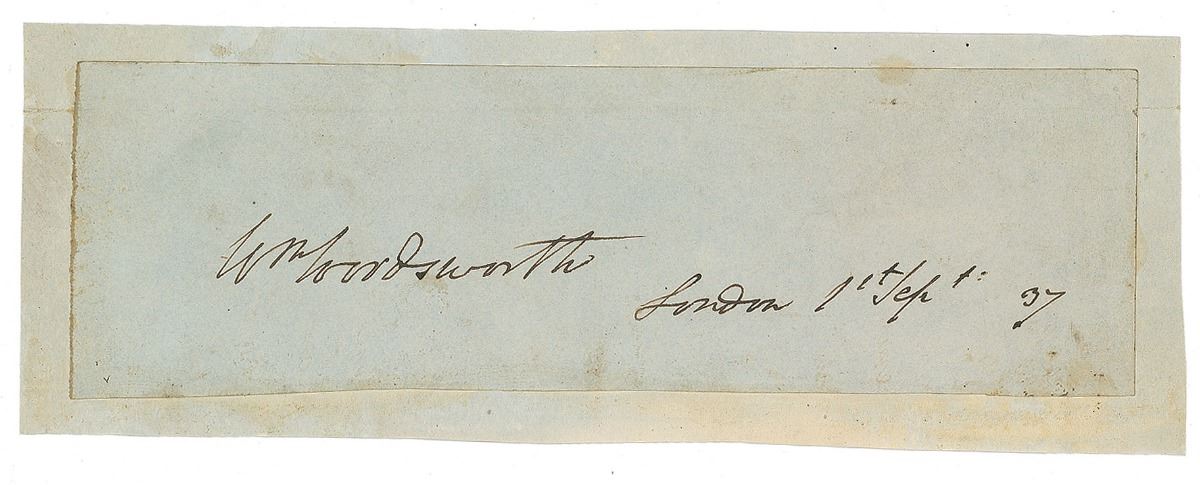 Wm Wordsworth
London 1st Sept: 37